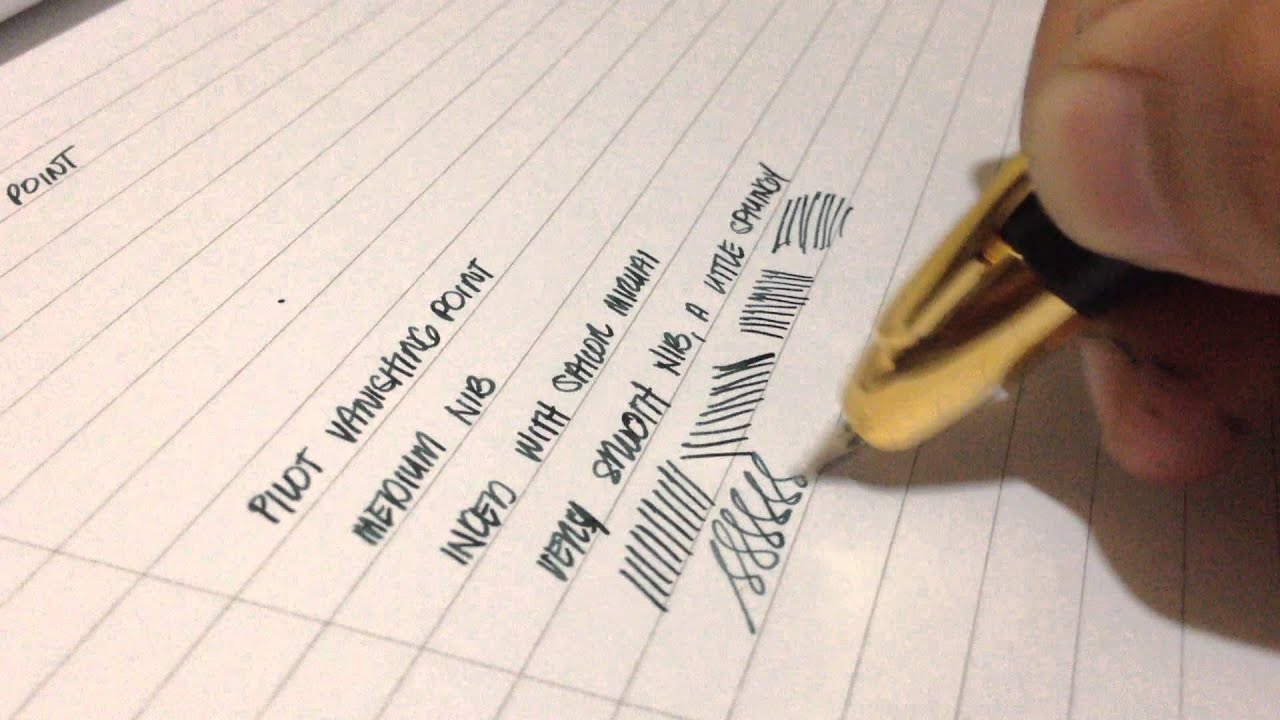 POINT
PILOT VANISHING POINT
MEDIUM NIB
INCED WITH SAILOR MIRUAI
VERY SMOOTH NIB, A LITTLE SPRINGY